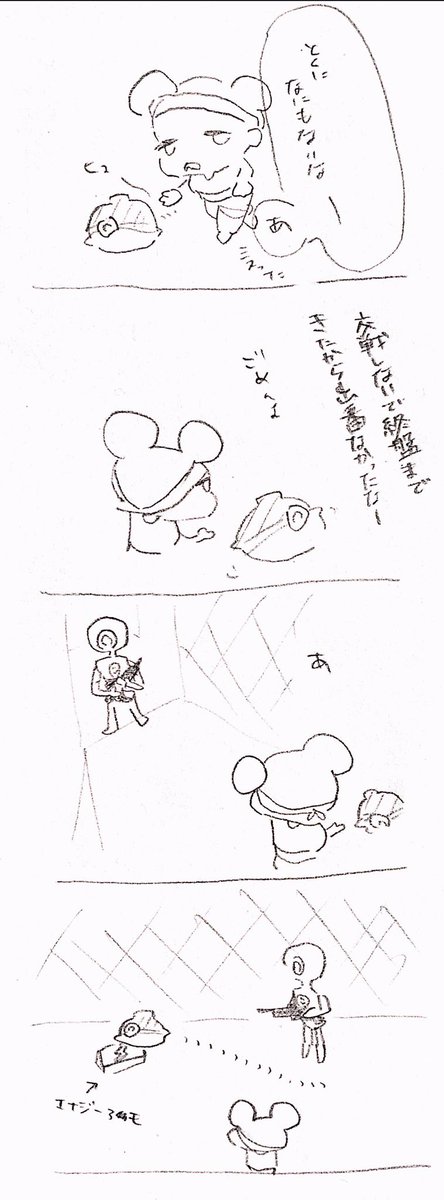 とくに
なにもないなー
あ
ミスった
ごめんよ
交戦しないで終盤まで
きたから出番なかったなー
あ
エナジー34モ